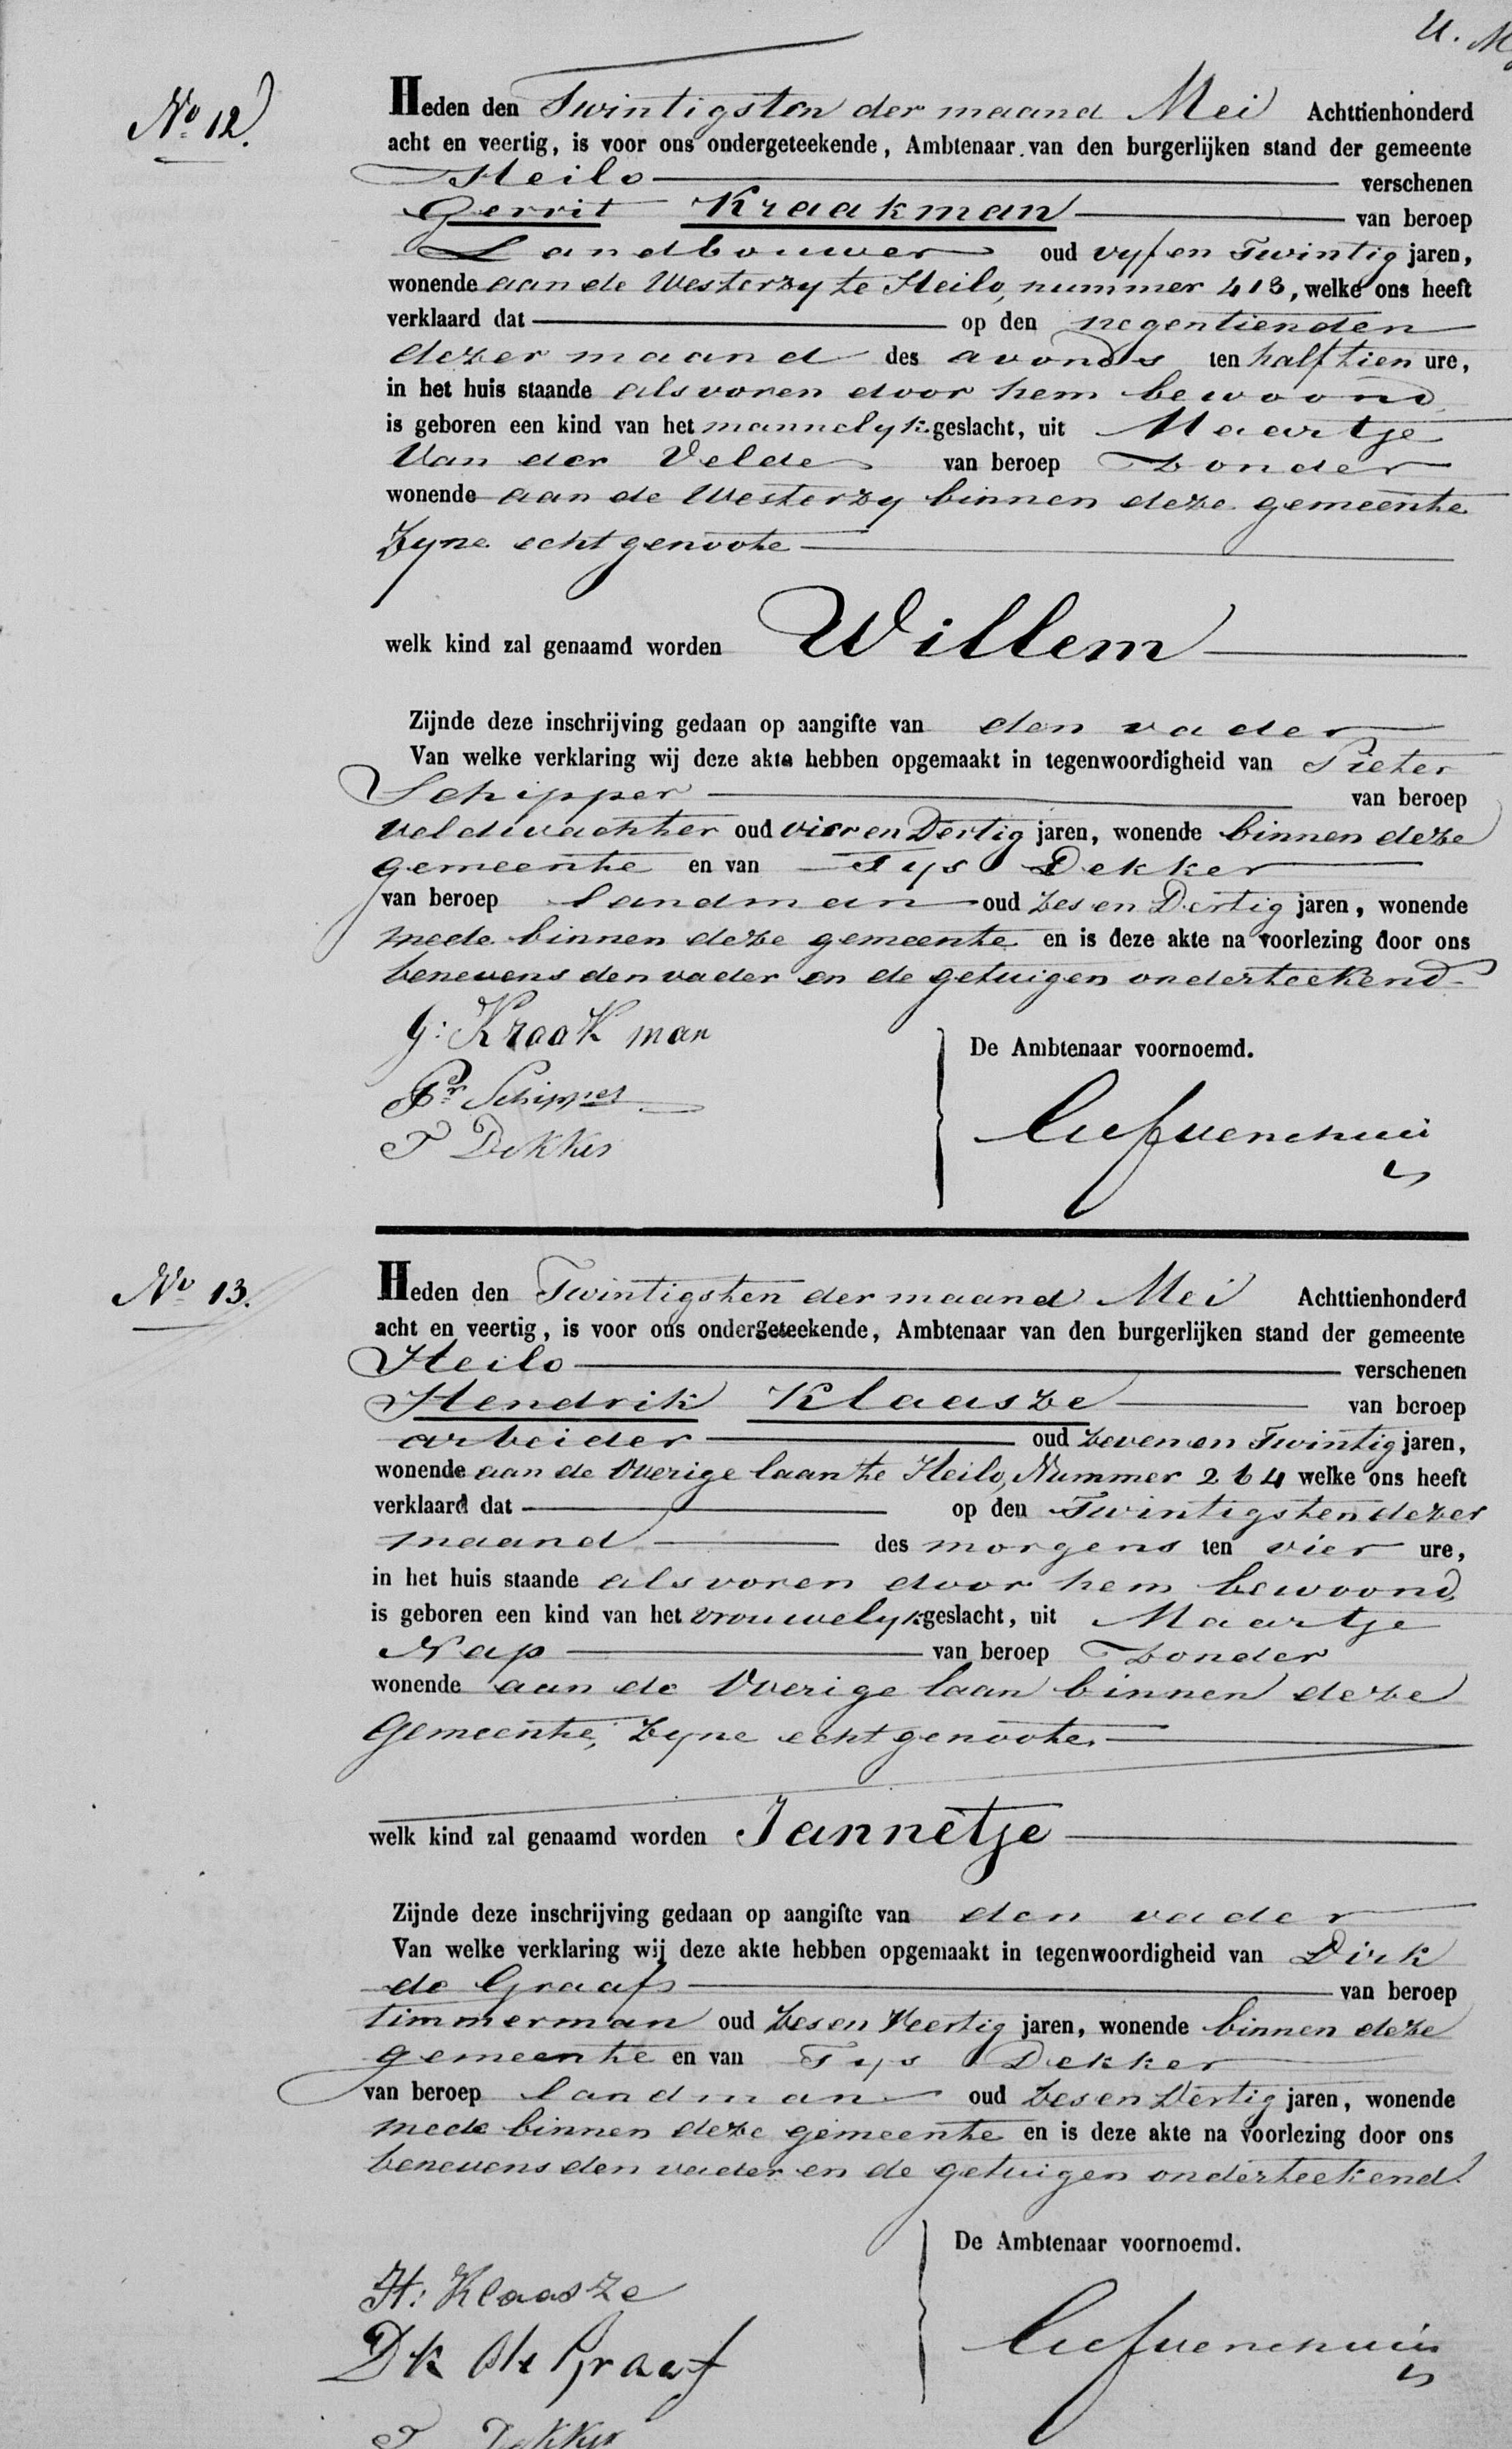 U. M
No 12.
Heden den Twintigsten der maand Mei Achttienhonderd
acht en veertig, is voor ons ondergeteekende, Ambtenaar van den burgerlijken stand der gemeente
Heilo verschenen
Gerrit Kraakman van beroep
Landbouwer oud vyf en Twintig jaren,
wonende aan de Westerzy te Heilo, nummer 413, welke ons heeft
verklaard dat op den negentienden
dezer maand des avonds ten half tien ure,
in het huis staande als voren door hem bewoond
is geboren een kind van het mannelyk geslacht, uit Maartje
Van der Velde van beroep Zonder
wonende aan de Westerzy binnen deze gemeente
Zyne echtgenoote
welk kind zal genaamd worden Willem
Zijnde deze inschrijving gedaan op aangifte van den vader
Van welke verklaring wij deze akte hebben opgemaakt in tegenwoordigheid van Pieter
Schipper van beroep
veldwachter oud vier en Dertig jaren, wonende binnen deze
gemeente en van Tys Dekker
van beroep landman oud zes en Dertig jaren, wonende
mede binnen deze gemeente en is deze akte na voorlezing door ons
benevens den vader en de getuigen onderteekend
G: Kraakman
Pr Schipper
T Dekker
De Ambtenaar voornoemd.
No 13.
Heden den Twintigsten der maand Mei Achttienhonderd
acht en veertig, is voor ons ondergeteekende, Ambtenaar van den burgerlijken stand der gemeente
Heilo verschenen
Hendrik Klaasze van beroep
arbeider oud zeven en Twintig jaren,
wonende aan de Overige laan te Heilo, Nummer 264 welke ons heeft
verklaard dat op den Twintigsten dezer
maand des morgens ten vier ure,
in het huis staande als voren door hem bewoond,
is geboren een kind van het vrouwelyk geslacht, uit Maartje
Nap van beroep Zonder
wonende aan de Overige laan binnen deze
Gemeente, Zyne echtgenoote.
welk kind zal genaamd worden Jannetje
Zijnde deze inschrijving gedaan op aangifte van den vader
Van welke verklaring wij deze akte hebben opgemaakt in tegenwoordigheid van Dirk
de Graaf van beroep
timmerman oud zes en Veertig jaren, wonende binnen deze
gemeente en van Tys Dekker
van beroep landman oud zes en Dertig jaren, wonende
mede binnen deze gemeente en is deze akte na voorlezing door ons
benevens den vader en de getuigen onderteekend.
De Ambtenaar voornoemd.
H: Klaasze
Dk de Graaf
T Dekker